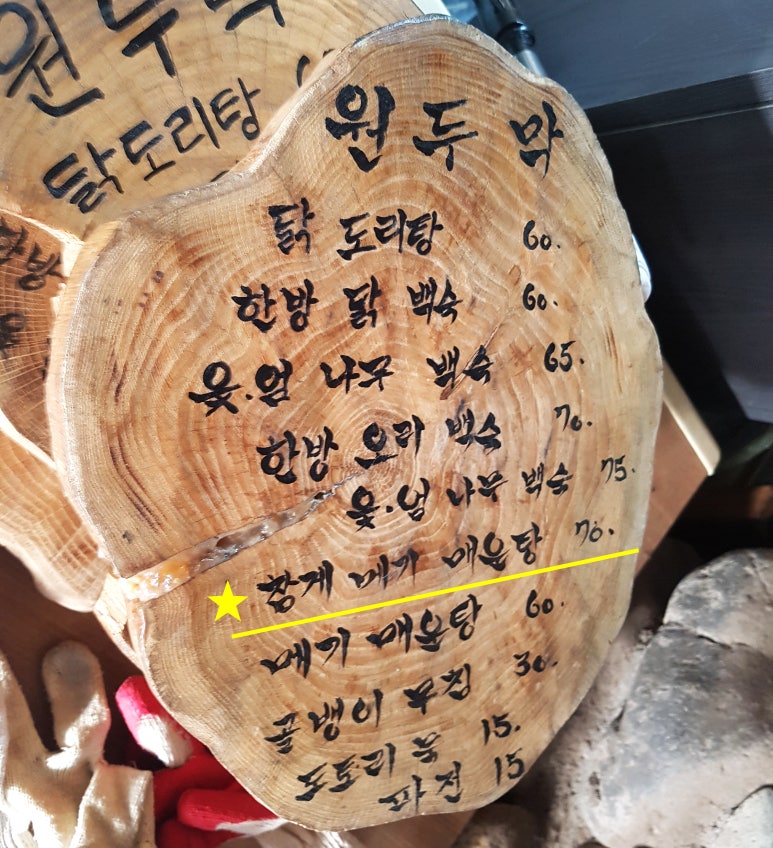 원두막
닭도리탕
원 두 막
닭 도리탕 60.
한방 닭 백숙 60.
옻.엄 나무 백숙 65.
한방 오리 백숙 70.
옻.엄 나무 백숙 75.
참게 메기 매운탕 70.
메기 매운탕 60.
골뱅이 무침 30.
도토리 묵 15.
파전 15